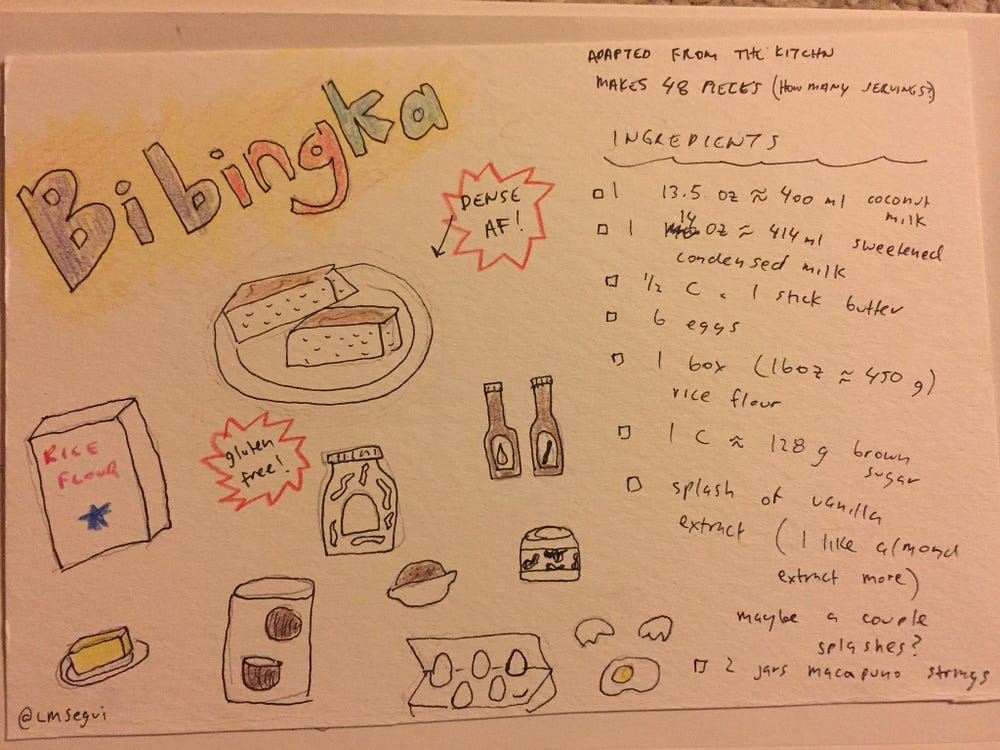 Bibingka
ADAPTED FROM THE KITCHN
MAKES 48 PIECES (HOW MANY SERVINGS?)
DENSE
AF!
INGREDIENTS
1 13.5 oz ≈ 400 ml coconut
milk
1 14 oz ≈ 414 ml sweetened
condensed milk
1/2 C = 1 stick butter
6 eggs
1 box (16oz ≈ 450 g)
rice flour
1 C ≈ 128 g brown
sugar
splash of vanilla
extract (I like almond
extract more)
maybe a couple
splashes?
2 jars macapuno strings
RICE
FLOUR
gluten
free!
@LMSegui